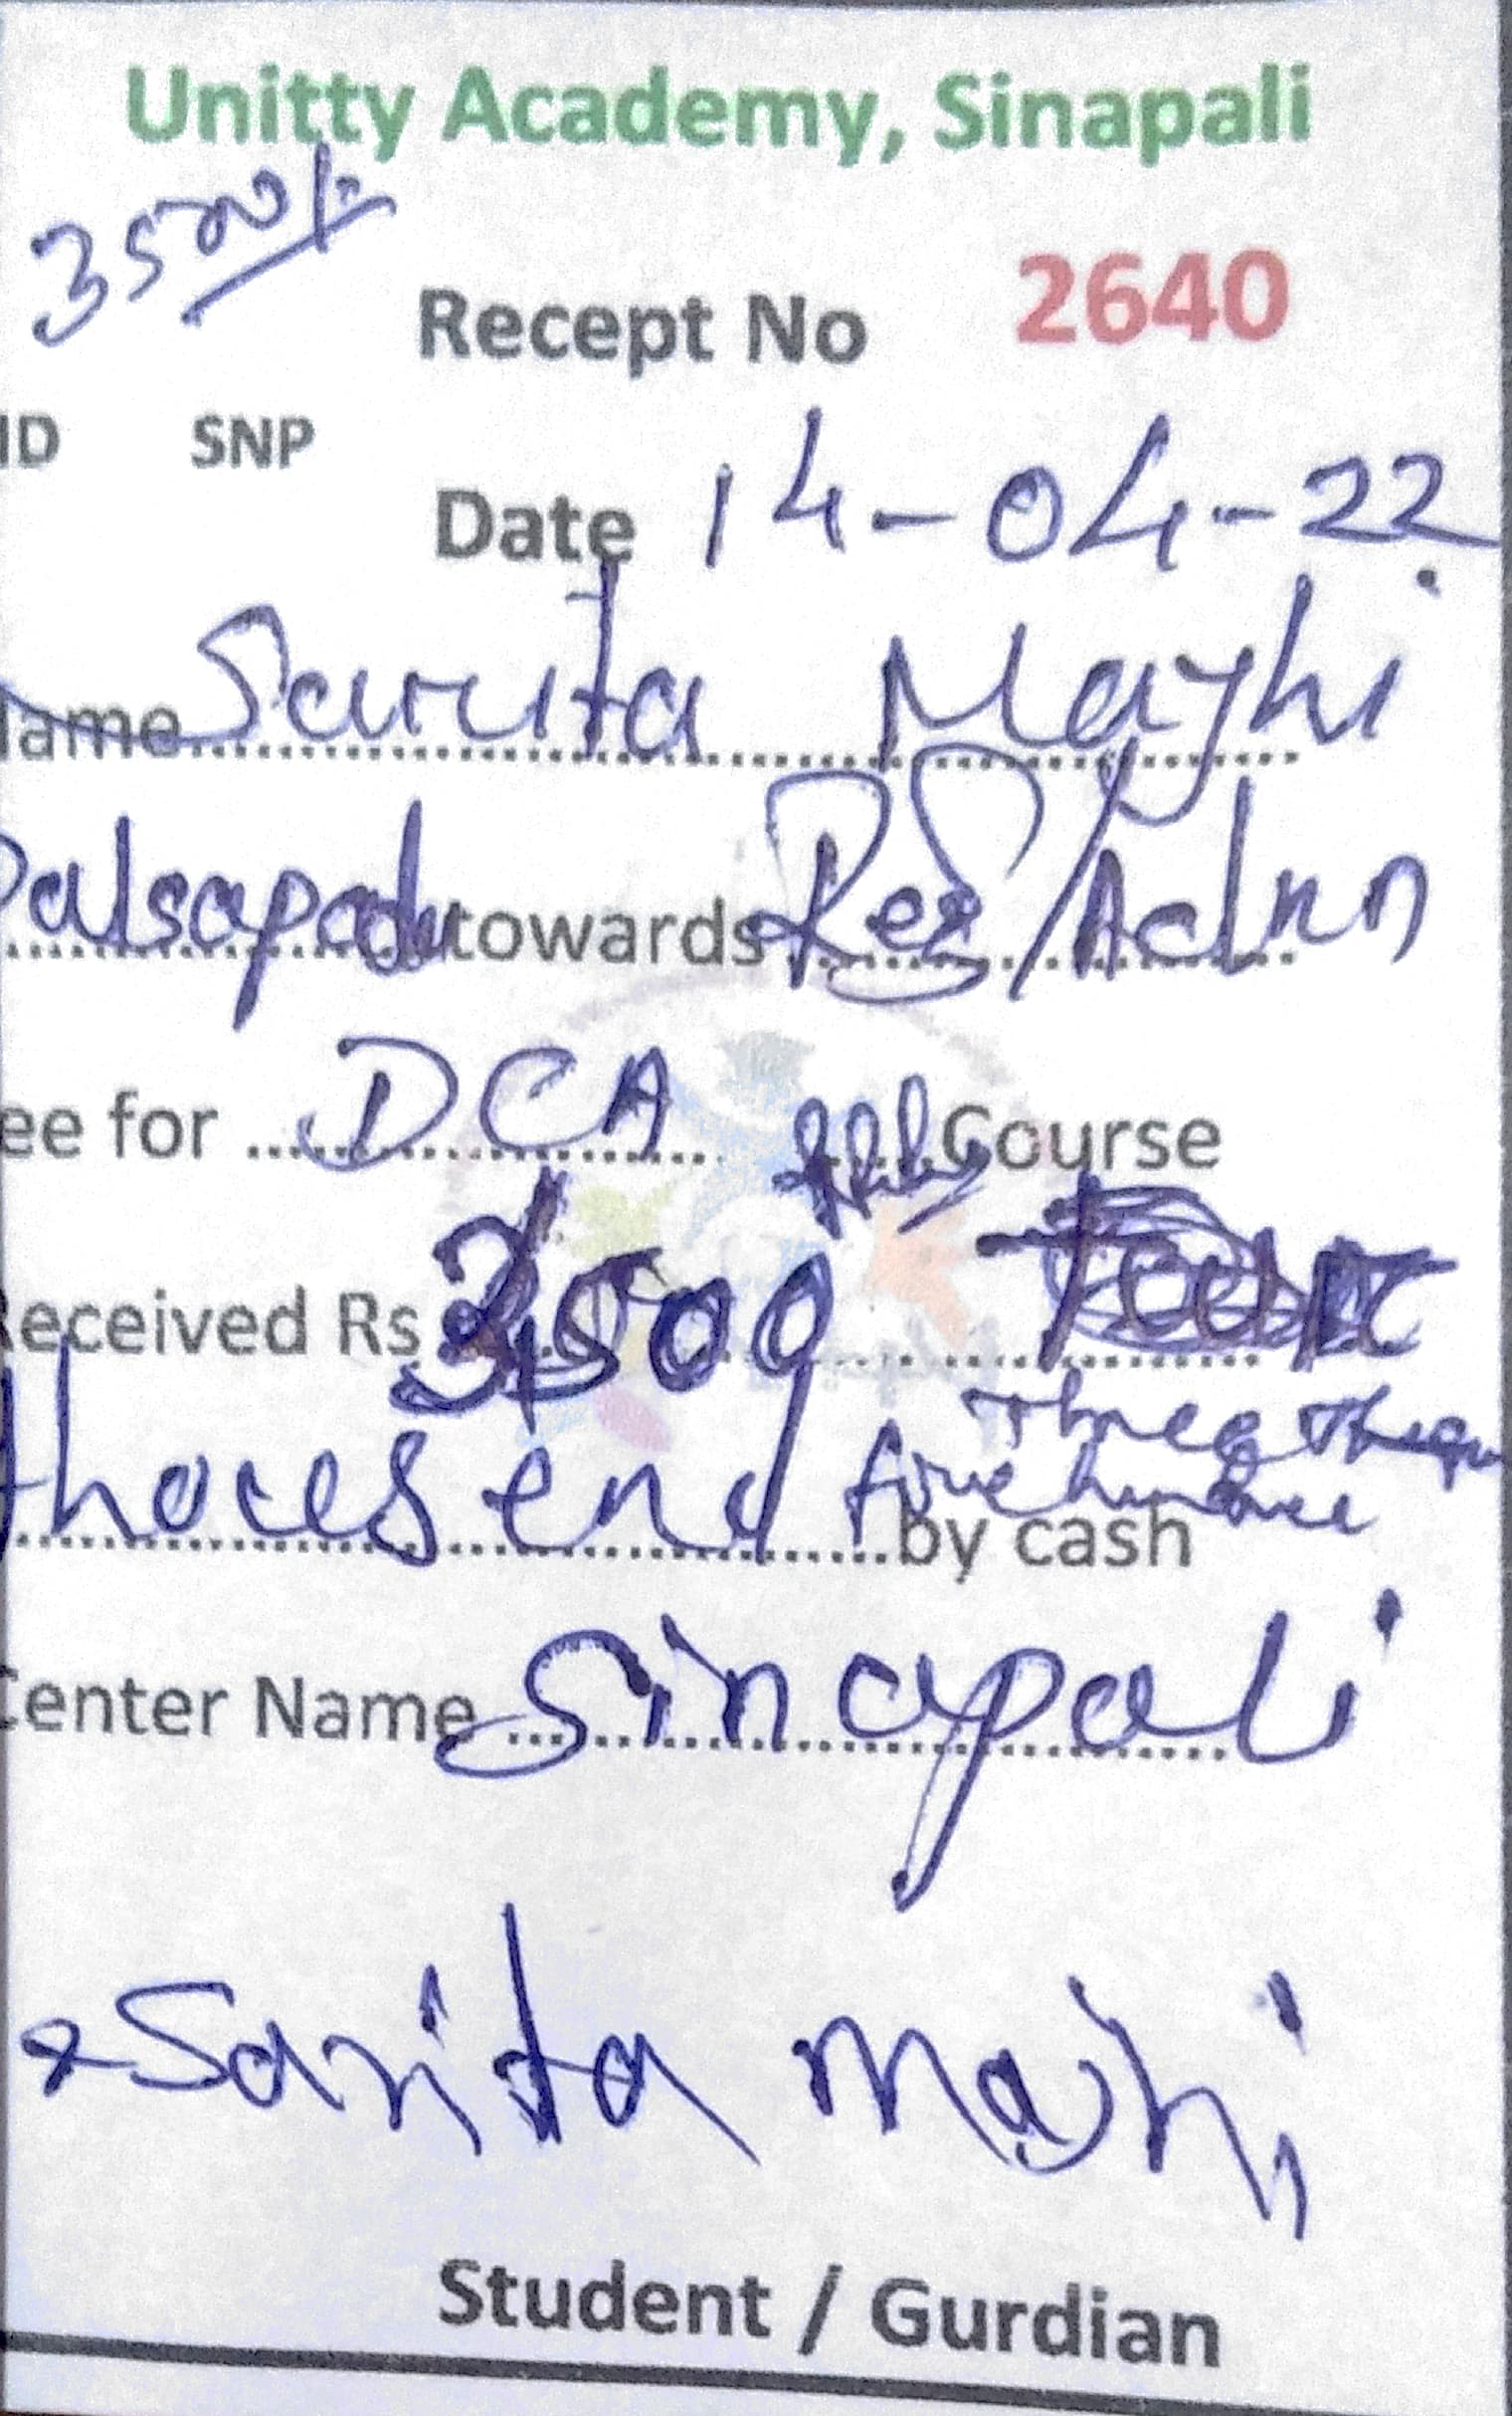 Unitty Academy, Sinapali
3500/-
Recept No 2640
ID SNP
Date 14-04-22
ame Sarita Majhi
Palsapada towards Reg/Admn
ee for DCA Course
eceived Rs 3500
Three
thousend five by cash
enter Name Sinapali
Sarita Majhi
Student / Gurdian